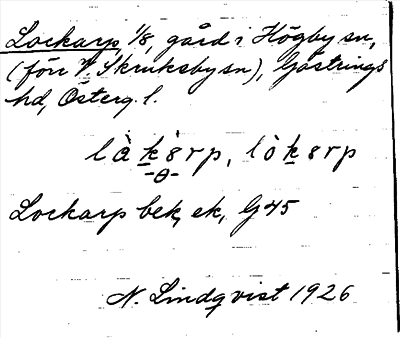 Lockarp, 1/8, gård i Högby sn,
(förr V. Skruksby sn), Göstrings
hd, Österg. l.
làkàrp, lòkarp
-a-
Lockarp bek, ek, G 45
N. Lindqvist 1926